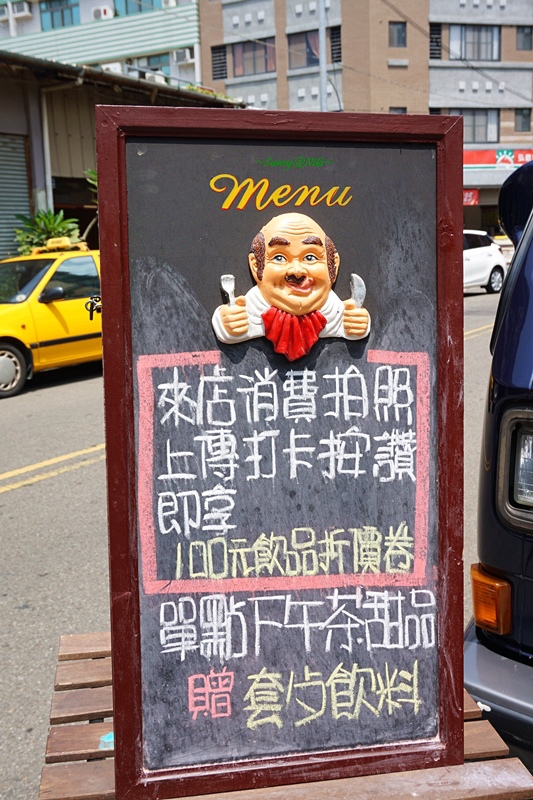 Menu
來店消費拍照
上傳打卡按讚
即享
100元飲品折價卷
單點下午茶甜品
贈 套夕飲料